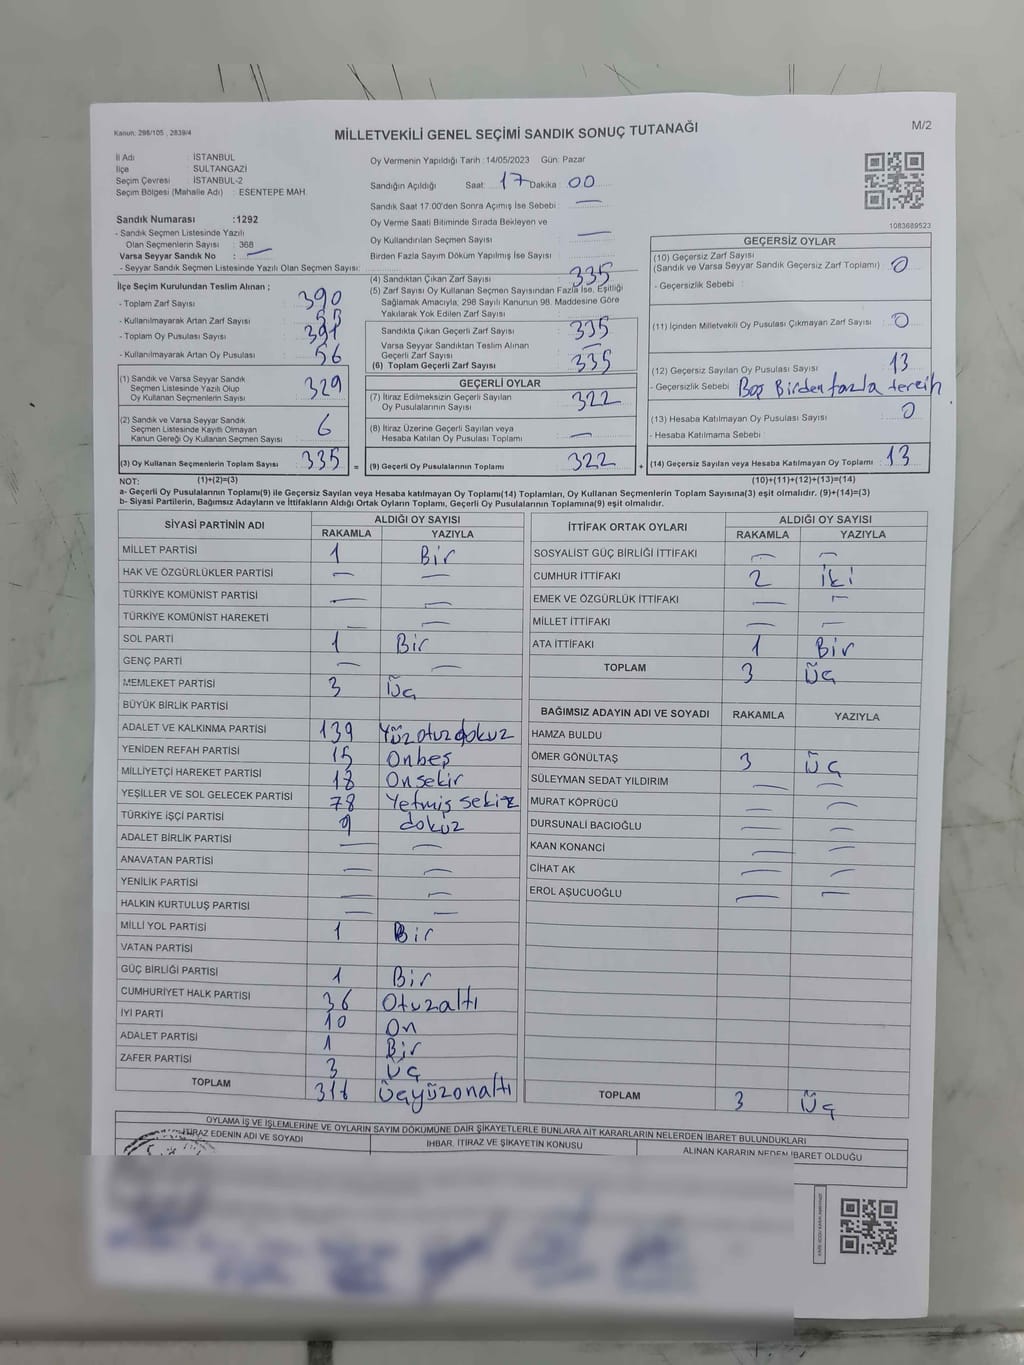 Kanun: 298/105 , 2839/4
MİLLETVEKİLİ GENEL SEÇİMİ SANDIK SONUÇ TUTANAĞI
M/2
İl Adı : İSTANBUL
İlçe : SULTANGAZİ
Seçim Çevresi : İSTANBUL-2
Seçim Bölgesi (Mahalle Adı) : ESENTEPE MAH.
Oy Vermenin Yapıldığı Tarih :14/05/2023 Gün: Pazar
Sandığın Açıldığı Saat: 17 Dakika : 00
Sandık Saat 17:00'den Sonra Açımış İse Sebebi : —
Oy Verme Saati Bitiminde Sırada Bekleyen ve
Oy Kullandırılan Seçmen Sayısı : —
Birden Fazla Sayım Döküm Yapılmış İse Sayısı :
1083689523
Sandık Numarası :1292
- Sandık Seçmen Listesinde Yazılı
Olan Seçmenlerin Sayısı : 368
Varsa Seyyar Sandık No : —
- Seyyar Sandık Seçmen Listesinde Yazılı Olan Seçmen Sayısı:
İlçe Seçim Kurulundan Teslim Alınan ;
- Toplam Zarf Sayısı : 390
- Kullanılmayarak Artan Zarf Sayısı : 55
- Toplam Oy Pusulası Sayısı : 391
- Kullanılmayarak Artan Oy Pusulası : 56
(1) Sandık ve Varsa Seyyar Sandık
Seçmen Listesinde Yazılı Olup
Oy Kullanan Seçmenlerin Sayısı : 329
(2) Sandık ve Varsa Seyyar Sandık
Seçmen Listesinde Kayıtlı Olmayan
Kanun Gereği Oy Kullanan Seçmen Sayısı : 6
(3) Oy Kullanan Seçmenlerin Toplam Sayısı : 335 =
(4) Sandıktan Çıkan Zarf Sayısı : 335
(5) Zarf Sayısı Oy Kullanan Seçmen Sayısından Fazla İse, Eşitliği
Sağlamak Amacıyla; 298 Sayılı Kanunun 98. Maddesine Göre
Yakılarak Yok Edilen Zarf Sayısı :
Sandıkta Çıkan Geçerli Zarf Sayısı : 335
Varsa Seyyar Sandıktan Teslim Alınan
Geçerli Zarf Sayısı : —
(6) Toplam Geçerli Zarf Sayısı : 335
GEÇERLİ OYLAR
(7) İtiraz Edilmeksizin Geçerli Sayılan
Oy Pusulalarının Sayısı : 322
(8) İtiraz Üzerine Geçerli Sayılan veya
Hesaba Katılan Oy Pusulası Toplamı : —
(9) Geçerli Oy Pusulalarının Toplamı : 322 +
GEÇERSİZ OYLAR
(10) Geçersiz Zarf Sayısı
(Sandık ve Varsa Seyyar Sandık Geçersiz Zarf Toplamı) : 0
- Geçersizlik Sebebi :
(11) İçinden Milletvekili Oy Pusulası Çıkmayan Zarf Sayısı : 0
(12) Geçersiz Sayılan Oy Pusulası Sayısı : 13
- Geçersizlik Sebebi : Boş Birden fazla tercih
(13) Hesaba Katılmayan Oy Pusulası Sayısı : 0
- Hesaba Katılmama Sebebi :
(14) Geçersiz Sayılan veya Hesaba Katılmayan Oy Toplamı : 13
NOT: (1)+(2)=(3) (10)+(11)+(12)+(13)=(14)
a- Geçerli Oy Pusulalarının Toplamı(9) ile Geçersiz Sayılan veya Hesaba katılmayan Oy Toplamı(14) Toplamları, Oy Kullanan Seçmenlerin Toplam Sayısına(3) eşit olmalıdır. (9)+(14)=(3)
b- Siyasi Partilerin, Bağımsız Adayların ve İttifakların Aldığı Ortak Oyların Toplamı, Geçerli Oy Pusulalarının Toplamına(9) eşit olmalıdır.
SİYASİ PARTİNİN ADI ALDIĞI OY SAYISI
RAKAMLA YAZIYLA
MİLLET PARTİSİ 1 Bir
HAK VE ÖZGÜRLÜKLER PARTİSİ — —
TÜRKİYE KOMÜNİST PARTİSİ — —
TÜRKİYE KOMÜNİST HAREKETİ — —
SOL PARTİ 1 Bir
GENÇ PARTİ — —
MEMLEKET PARTİSİ 3 Üç
BÜYÜK BİRLİK PARTİSİ
ADALET VE KALKINMA PARTİSİ 139 Yüzotuzdokuz
YENİDEN REFAH PARTİSİ 15 Onbeş
MİLLİYETÇİ HAREKET PARTİSİ 18 Onsekiz
YEŞİLLER VE SOL GELECEK PARTİSİ 78 Yetmiş sekiz
TÜRKİYE İŞÇİ PARTİSİ 9 dokuz
ADALET BİRLİK PARTİSİ — —
ANAVATAN PARTİSİ — —
YENİLİK PARTİSİ — —
HALKIN KURTULUŞ PARTİSİ — —
MİLLİ YOL PARTİSİ 1 Bir
VATAN PARTİSİ
GÜÇ BİRLİĞİ PARTİSİ 1 Bir
CUMHURİYET HALK PARTİSİ 36 Otuzaltı
İYİ PARTİ 10 On
ADALET PARTİSİ 1 Bir
ZAFER PARTİSİ 3 Üç
TOPLAM 316 Üçyüzonaltı
İTTİFAK ORTAK OYLARI ALDIĞI OY SAYISI
RAKAMLA YAZIYLA
SOSYALİST GÜÇ BİRLİĞİ İTTİFAKI — —
CUMHUR İTTİFAKI 2 İki
EMEK VE ÖZGÜRLÜK İTTİFAKI — —
MİLLET İTTİFAKI — —
ATA İTTİFAKI 1 Bir
TOPLAM 3 Üç
BAĞIMSIZ ADAYIN ADI VE SOYADI RAKAMLA YAZIYLA
HAMZA BULDU
ÖMER GÖNÜLTAŞ 3 Üç
SÜLEYMAN SEDAT YILDIRIM — —
MURAT KÖPRÜCÜ — —
DURSUNALİ BACIOĞLU — —
KAAN KONANCİ — —
CİHAT AK — —
EROL AŞUCUOĞLU — —
TOPLAM 3 Üç
OYLAMA İŞ VE İŞLEMLERİNE VE OYLARIN SAYIM DÖKÜMÜNE DAİR ŞİKAYETLERLE BUNLARA AİT KARARLARIN NELERDEN İBARET BULUNDUKLARI
İTİRAZ EDENİN ADI VE SOYADI İHBAR, İTİRAZ VE ŞİKAYETİN KONUSU ALINAN KARARIN NEDEN İBARET OLDUĞU